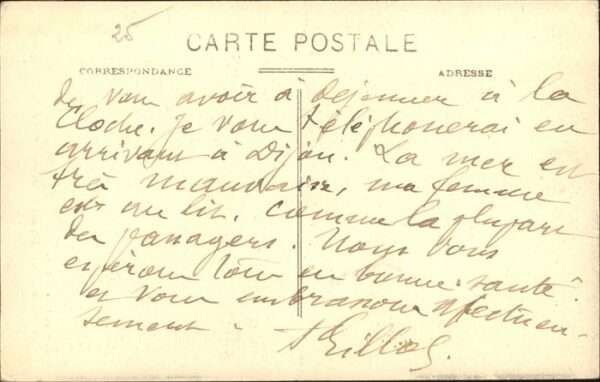 25
CARTE POSTALE
CORRESPONDANCE
ADRESSE
de vous avoir à déjeuner à la
Cloche. Je vous téléphonerai en
arrivant à Dijon. La mer est
très mauvaise, ma femme
est au lit, comme la plupart
des passagers. Nous vous
espérons tous en bonne santé
et vous embrassons affectueu-
sement.